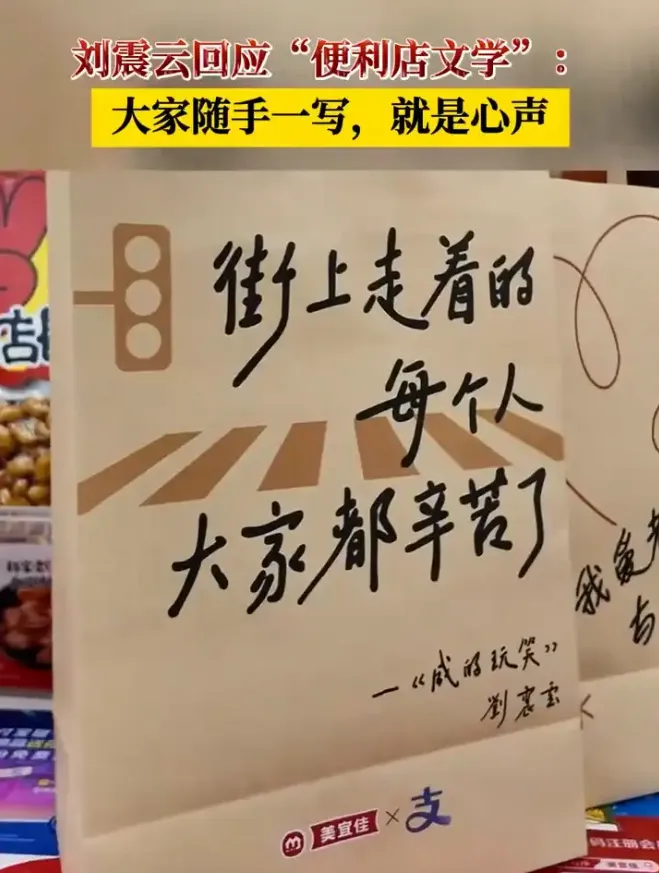 刘震云回应“便利店文学”：
大家随手一写，就是心声
街上走着的
每个人
大家都辛苦了
—《咸的玩笑》
劉震雲
美宜佳×支
我
与